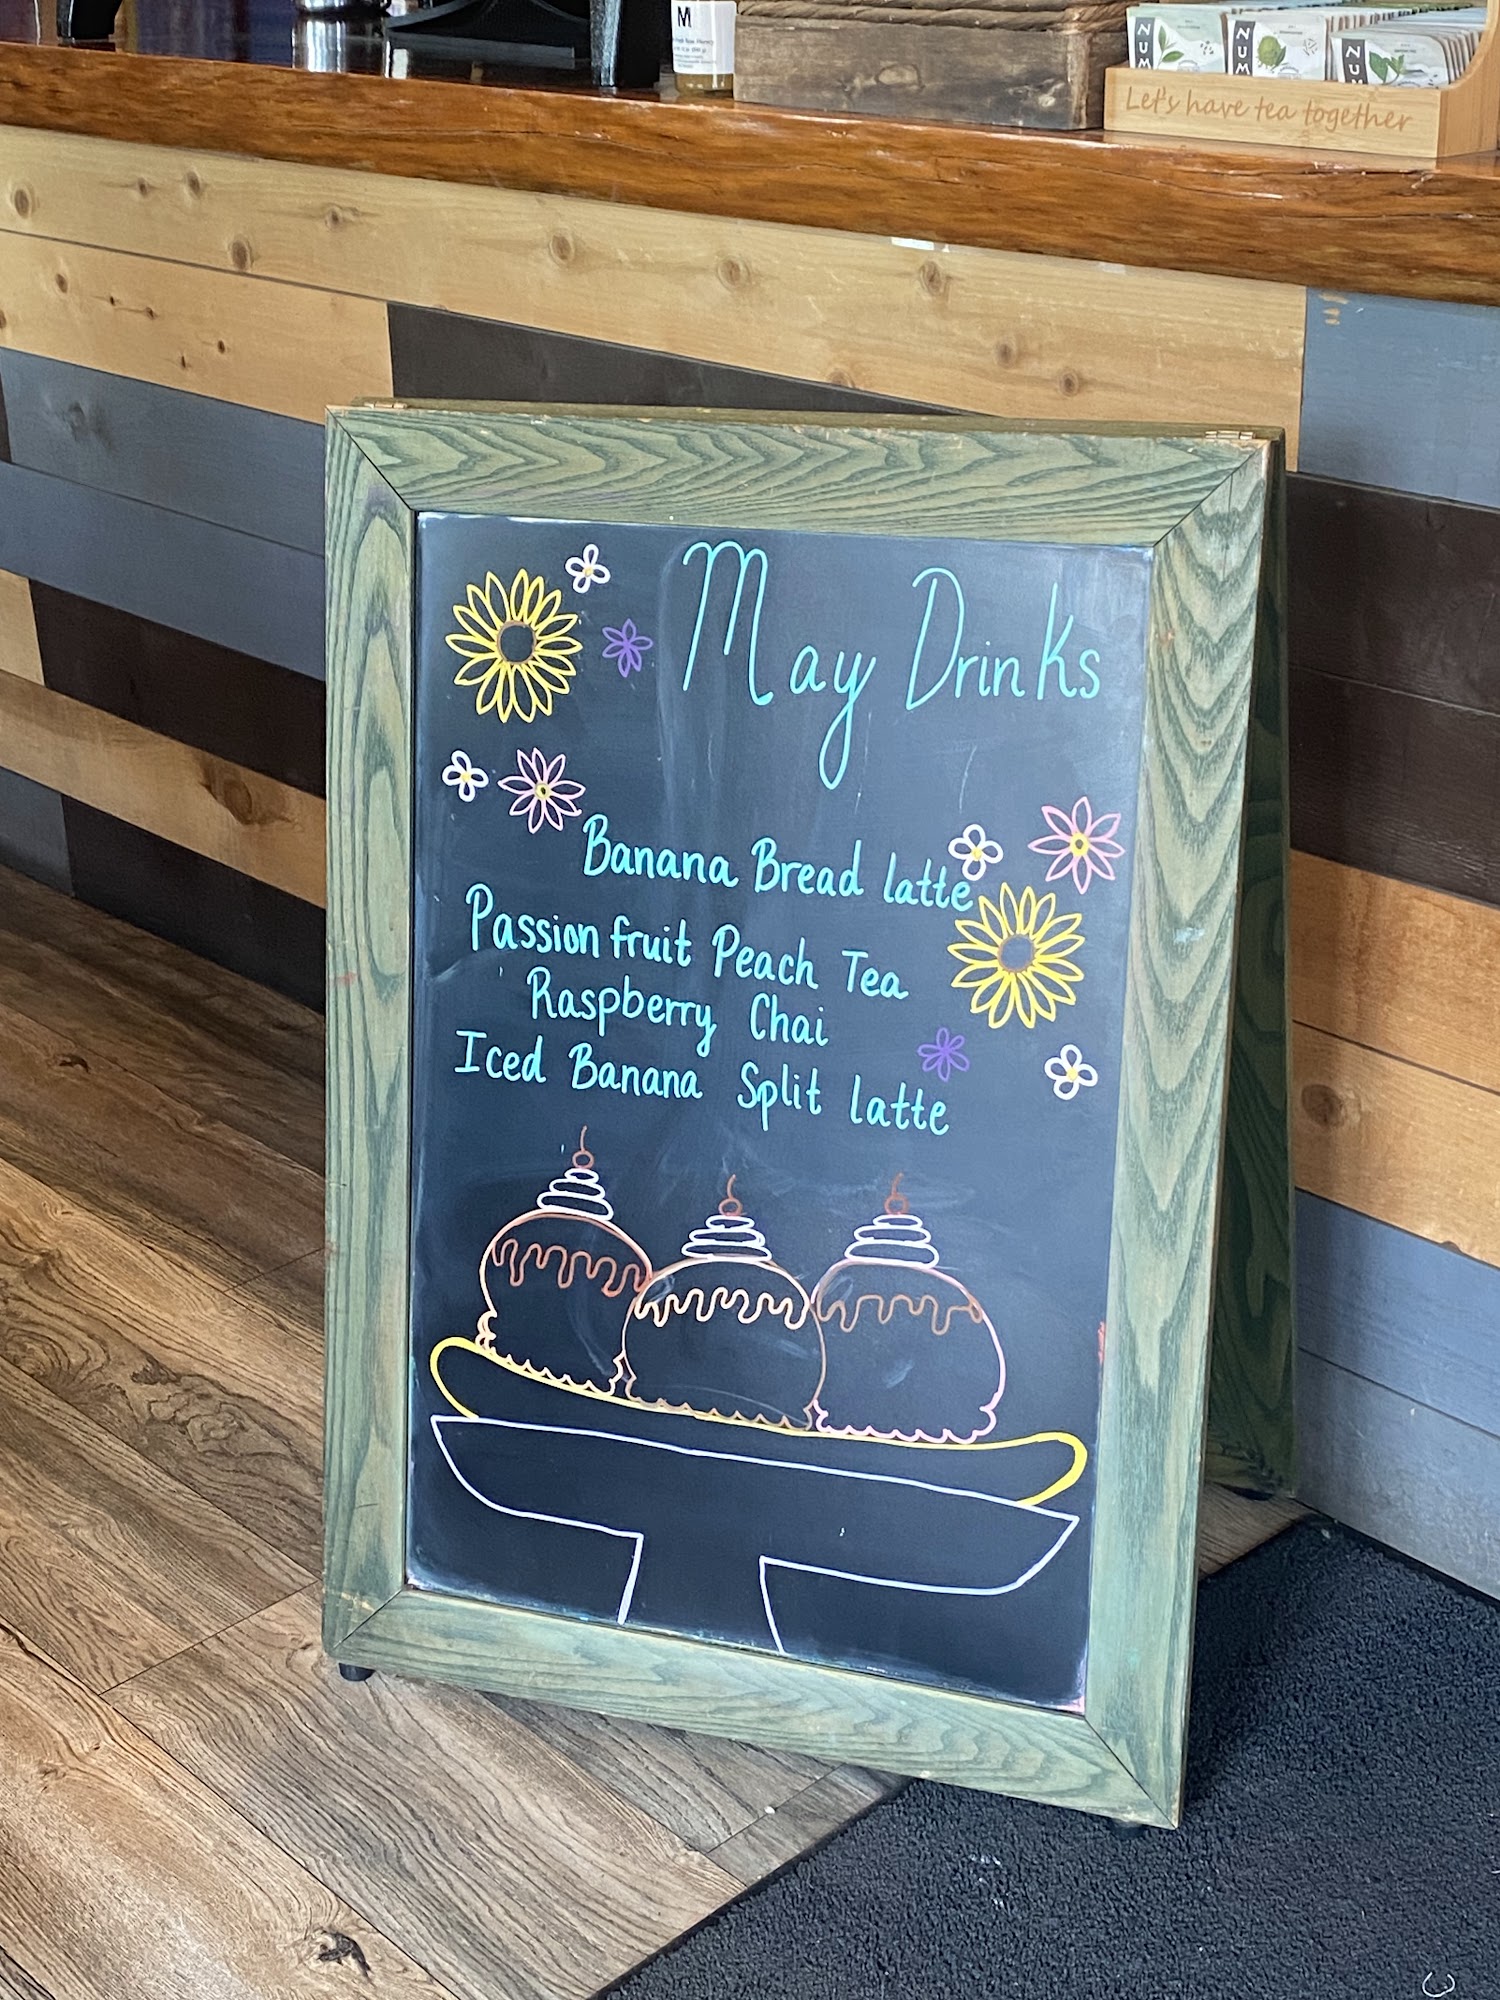 M
Let's have tea together
May Drinks
Banana Bread latte
Passion fruit Peach Tea
Raspberry Chai
Iced Banana Split latte